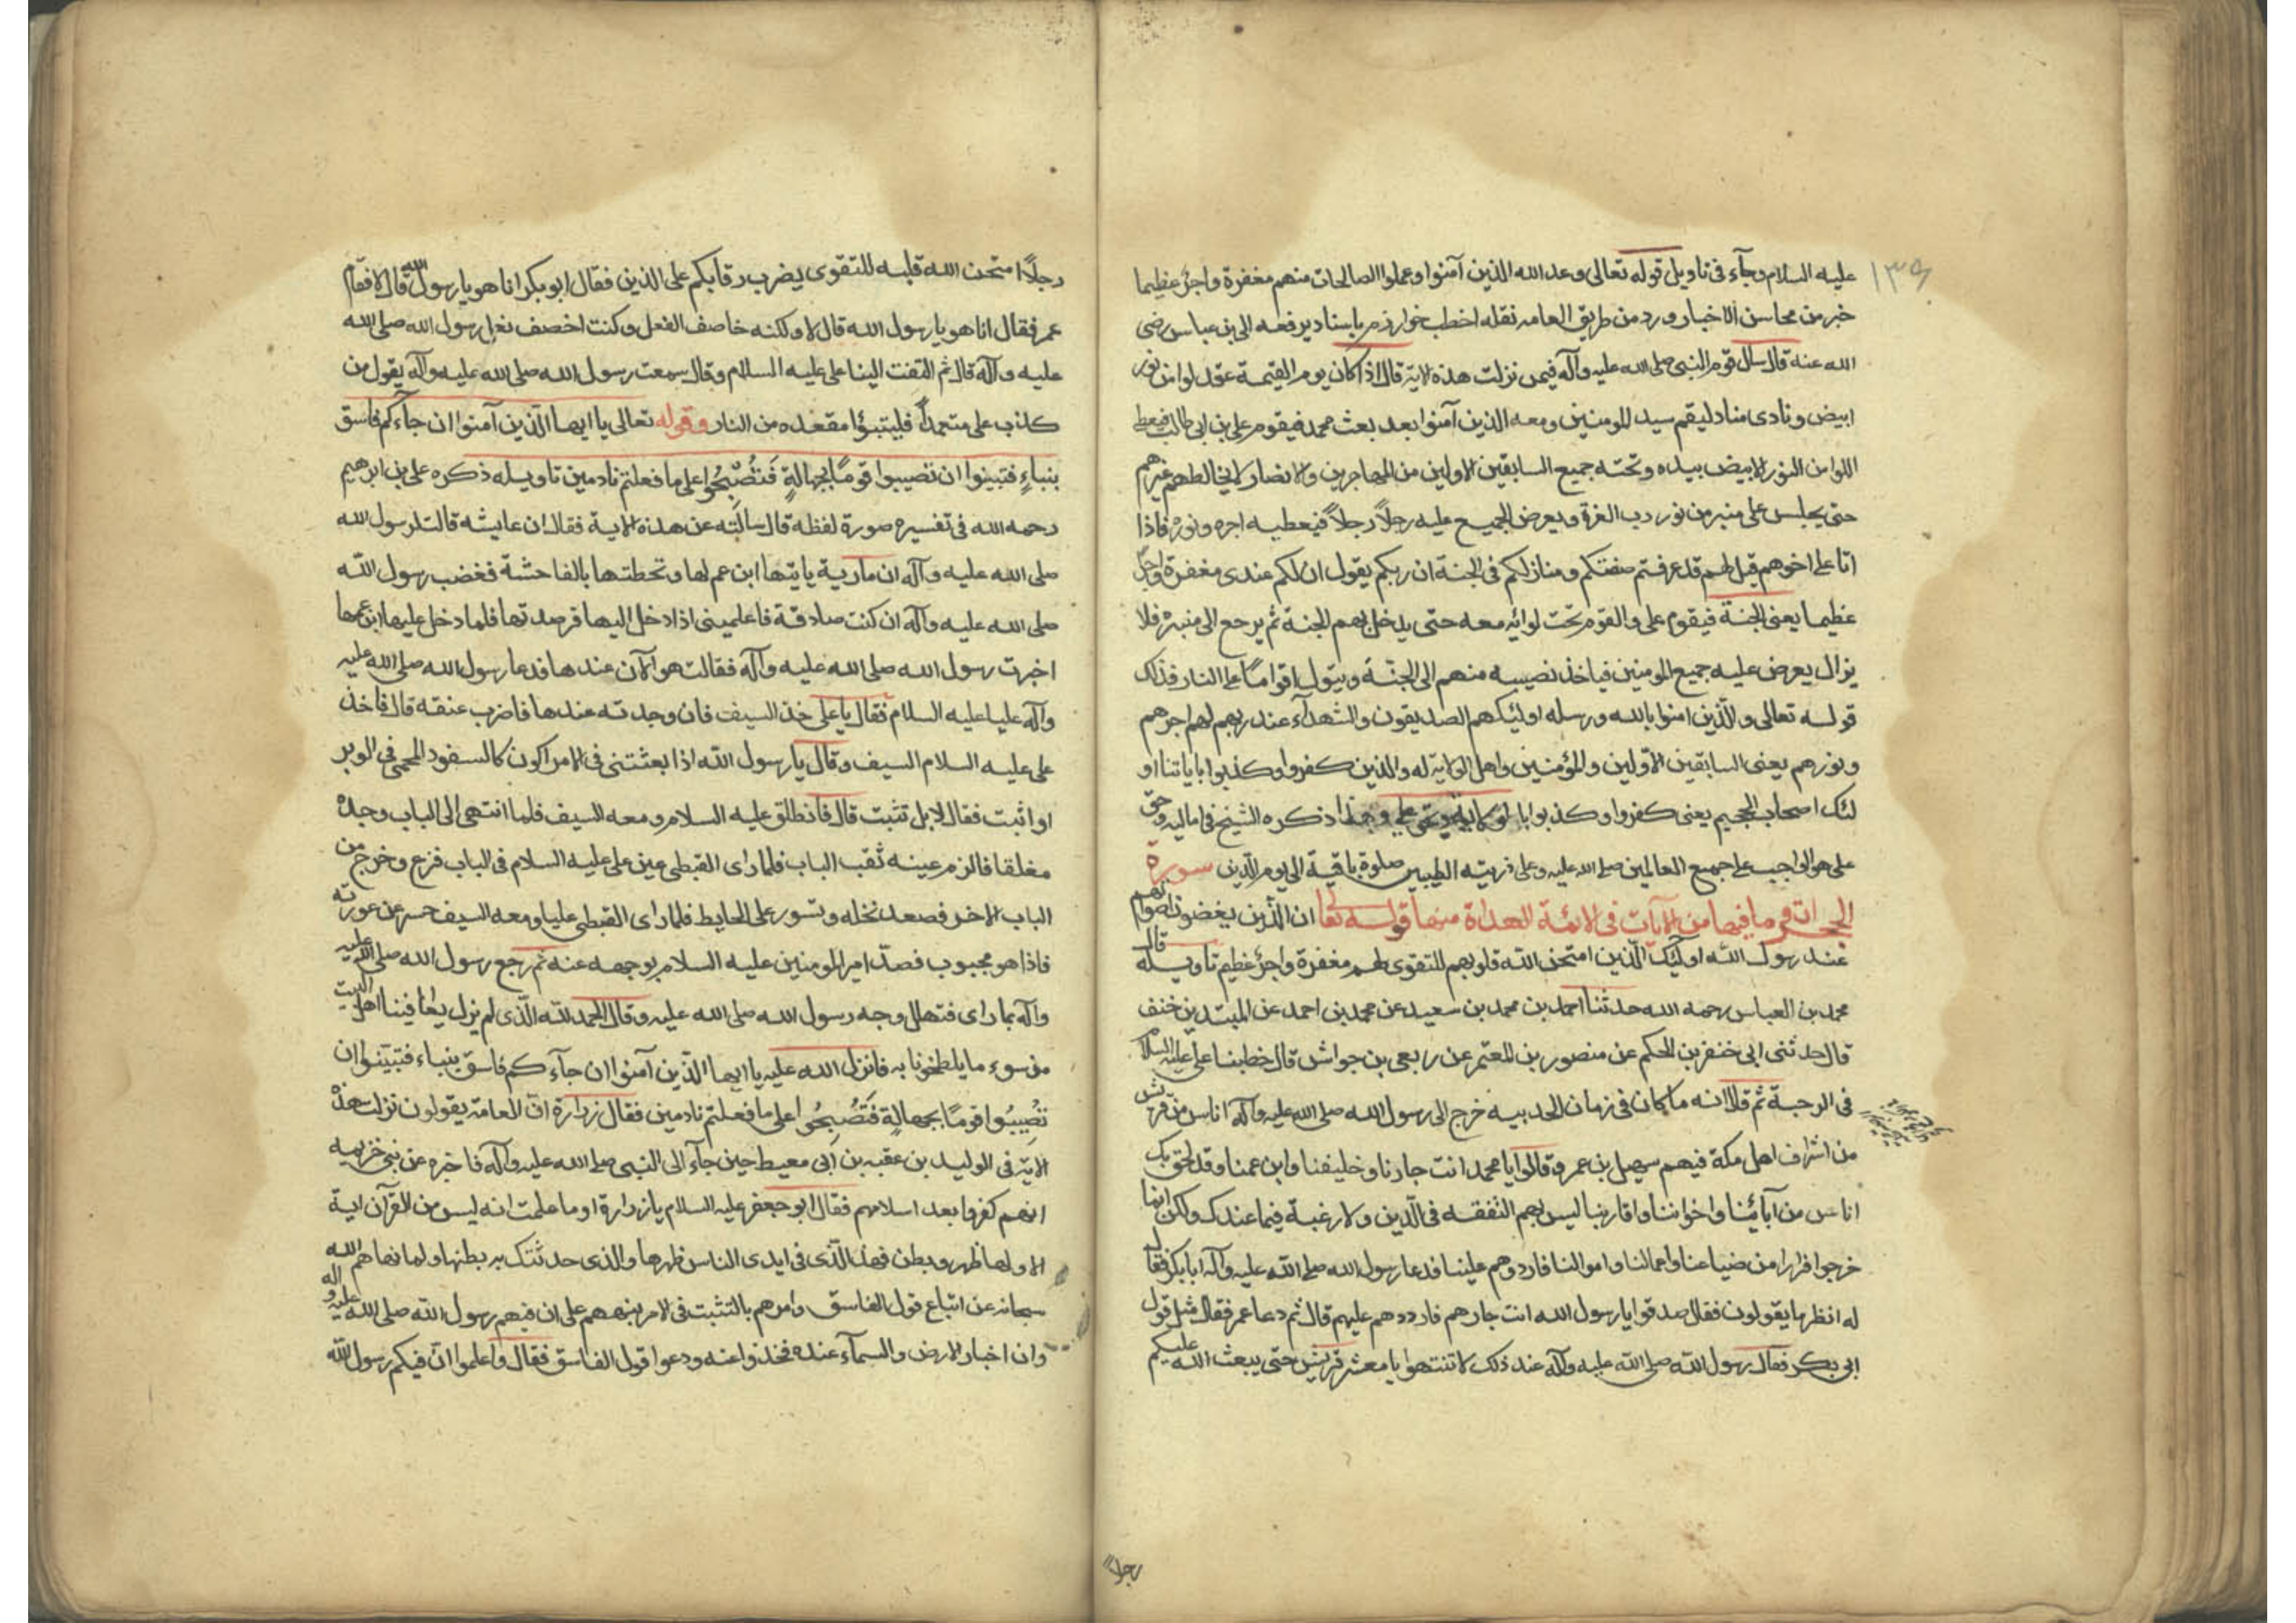 ١٣٩
عليه السلام وجآء فى تاويل قوله تعالى وعد الله الذين آمنوا وعملوا الصالحات منهم مغفرة واجرًا عظيما
خبر من محاسن الاخبار ورد من طريق العامه نقله اخطب خوارزم باسناد يرفعه الى بن عباس رضى
الله عنه قال سال قوم النبى صلى الله عليه وآله فيمن نزلت هذه الاية قال اذا كان يوم القيمة عقد لوا من نور
ابيض ونادى مناد ليقم سيد المومنين ومعه الذين آمنوا بعد بعث محمد فيقوم على بن ابى طالب فيعطى
اللوا من النور الابيض بيده وتحته جميع السابقين الاولين من المهاجرين والانصار لا يخالطهم غيرهم
حتى يجلس على منبر من نور رب العزة ويعرض الجميع عليه رجلاً رجلاً فيعطيه اجره ونوره فاذا
اتا على اخرهم قيل لهم قد عرفتم صفتكم ومنازلكم فى الجنة ان ربكم يقول ان لكم عندى مغفرة واجرًا
عظيما يعنى الجنة فيقوم على والقوم تحت لوائه معه حتى يدخل بهم الجنة ثم يرجع الى منبره فلا
يزال يعرض عليه جميع المومنين فياخذ نصيبه منهم الى الجنة و اقوامًا على النار فذلك
قوله تعالى والّذين امنوا بالله ورسله اولئك هم الصديقون والشهدآء عند ربهم لهم اجرهم
ونورهم يعنى السابقين الاولين والمؤمنين واهل الولاية له والذين كفروا وكذبوا باياتنا او
لئك اصحاب الجحيم يعنى كفروا وكذبوا بالولاية وبحق على وهذا ذكره الشيخ فى اماليه وحق
على هو الواجب على جميع العالمين صلى الله عليه وعلى ذريته الطيبين صلوة باقية الى يوم الدين سورة
الحجرات وما فيها من الآيات فى الائمة الهداة منها قوله تعا ان الّذين يغضون اصواتهم
عند رسول الله اولئك الّذين امتحن الله قلوبهم للتقوى لهم مغفرة واجرٌ عظيم تاويله قال
محمد بن العباس رحمه الله حدثنا احمد بن محمد بن سعيد عن محمد بن احمد عن المنذر بن خنفر
قال حدثنى ابى خنفر بن الحكم عن منصور بن المعتمر عن ربعى بن جواش قال خطبنا على عليه السلام
فى الرحبة ثم قال انه ما كان فى زمان الحديبيه خرج الى رسول الله صلى الله عليه وآله اناس من قريش
من اشراف اهل مكة فيهم سهيل بن عمرو وقالوا يا محمد انت جارنا وخليفنا وابن عمنا وقد لحق بك
اناس من آبائنا واخواننا واقاربنا ليس بهم التفقه فى الدّين ولا رغبة فيما عندك ولكن انما
خرجوا فرارا من ضياعنا واعمالنا واموالنا فارددهم علينا فدعا رسول الله صلى الله عليه وآله ابا بكر فقال
له انظر ما يقولون فقال صدقوا يا رسول الله انت جارهم فارددهم عليهم قال ثم دعا عمر فقال مثل قول
ابى بكر فقال رسول الله صلى الله عليه وآله عند ذلك لا تنتهوا يا معشر قريش حتى يبعث الله عليكم
رجلاً
رجلاً امتحن الله قلبه للتقوى يضرب رقابكم على الذين فقال ابو بكر انا هو يا رسول الله قال لا فقام
عمر فقال انا هو يا رسول الله قال لا ولكنه خاصف النعل وكنت اخصف نعل رسول الله صلى الله
عليه وآله قال ثم التفت الينا على عليه السلام وقال سمعت رسول الله صلى الله عليه وآله يقول من
كذب على متعمداً فليتبوّا مقعده من النار وقوله تعالى يا ايها الّذين آمنوا ان جآءكم فاسق
بنباءٍ فتبينوا ان تصيبوا قومًا بجهالةٍ فَتُصْبِحُوا على ما فعلتم نادمين تاويله ذكره على بن ابرهيم
رحمه الله فى تفسيره صورة لفظه قال سالته عن هذه الاية فقال ان عايشه قالت لرسول الله
صلى الله عليه وآله ان مارية ياتيها ابن عم لها وتحطتها بالفاحشة فغضب رسول الله
صلى الله عليه وآله ان كنت صادقة فاعلمينى اذا دخل اليها فرصدتها فلما دخل عليها ابن عمها
اخبرت رسول الله صلى الله عليه وآله فقالت هو الآن عندها فدعا رسول الله صلى الله عليه
وآله عليا عليه السلام فقال يا على خذ السيف فان وجدته عندها فاضرب عنقه قال فاخذ
على عليه السلام السيف وقال يا رسول الله اذا بعثتنى فى الامر اكون كالسفود المحمى فى الوبر
او اثبت فقال لا بل تثبت قال فانطلق عليه السلام ومعه السيف فلما انتهى الى الباب وجده
مغلقا فالزم عينه ثقب الباب فلما راى القبطى عين على عليه السلام فى الباب فزع وخرج من
الباب الاخر فصعد نخله وتسور على الحايط فلما راى القبطى عليا ومعه السيف حسر عن عورته
فاذا هو مجبوب فصدّ امير المومنين عليه السلام بوجهه عنه ثم رجع رسول الله صلى الله عليه
وآله بما راى فتهلل وجه رسول الله صلى الله عليه وقال الحمد لله الّذى لم يزل يعافينا اهل البيت
من سوء ما يلطخونا به فانزل الله عليه يا ايها الّذين آمنوا ان جآءكم فاسق بنباء فتبيّنوا ان
تُصِيبُوا قومًا بجهالةٍ فَتُصْبِحُوا على ما فعلتم نادمين فقال زرارة انّ العامة يقولون نزلت هذه
الاية فى الوليد بن عقبه بن ابى معيط حين جآء الى النبى صلى الله عليه وآله فاخبره عن بنى خزيمه
انهم كفروا بعد اسلامهم فقال ابو جعفر عليه السلام يا زرارة او ما علمت انه ليس من القرآن اية
الا ولها ظهر وبطن فهذا الّذى فى ايدى الناس ظهرها والذى حدثتك به بطنها ولما نهاهم الله
سبحانه عن اتباع قول الفاسق وامرهم بالتثبت فى الامر نبههم على ان فيهم رسول الله صلى الله عليه وآله
وان اخبار الارض والسمآء عنده فخذوا عنه ودعوا قول الفاسق فقال واعلموا انّ فيكم رسول الله